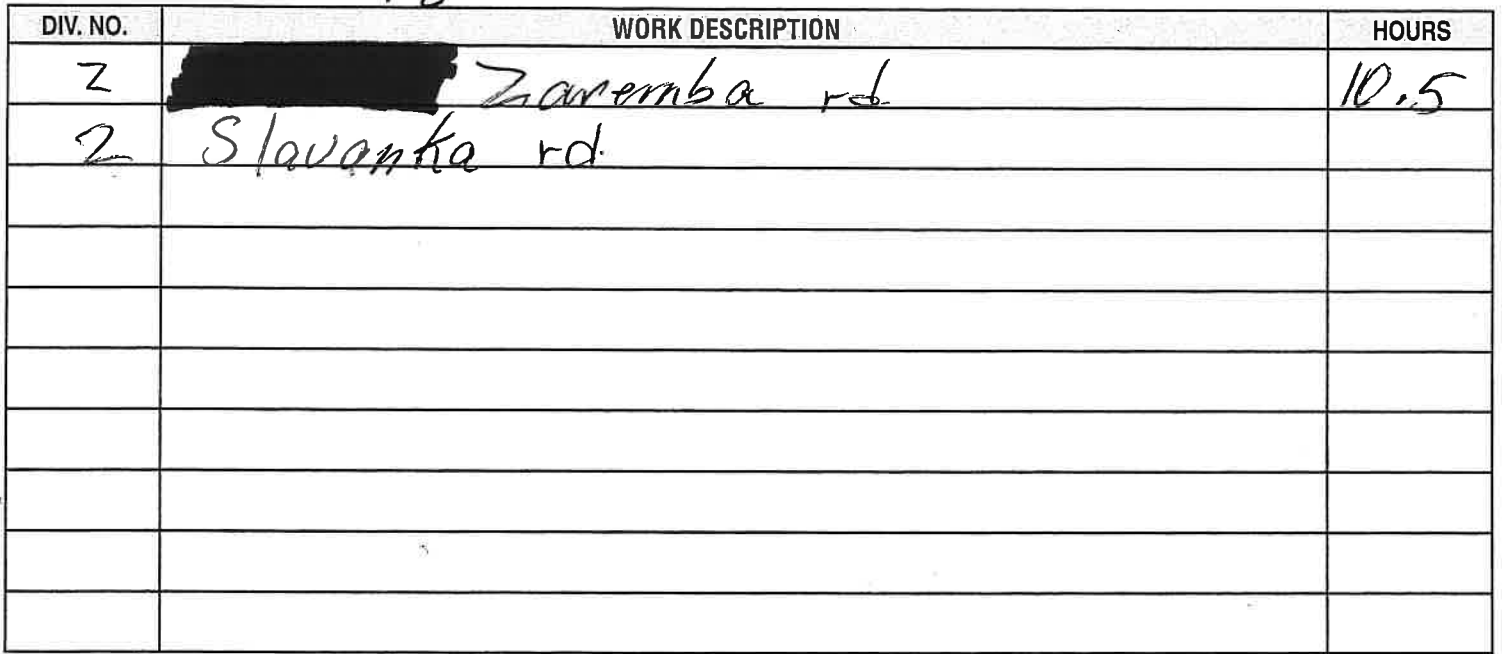 DIV. NO. WORK DESCRIPTION HOURS
2 Zaremba rd 10.5
2 Slavanka rd.